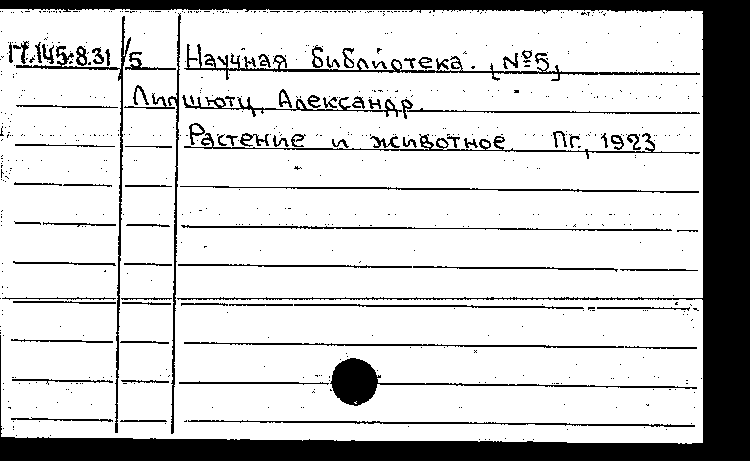 П.145:8.31/5 Научная библиотека. [№5]
Липшютц, Александр.
Растение и животное. Пг., 1923